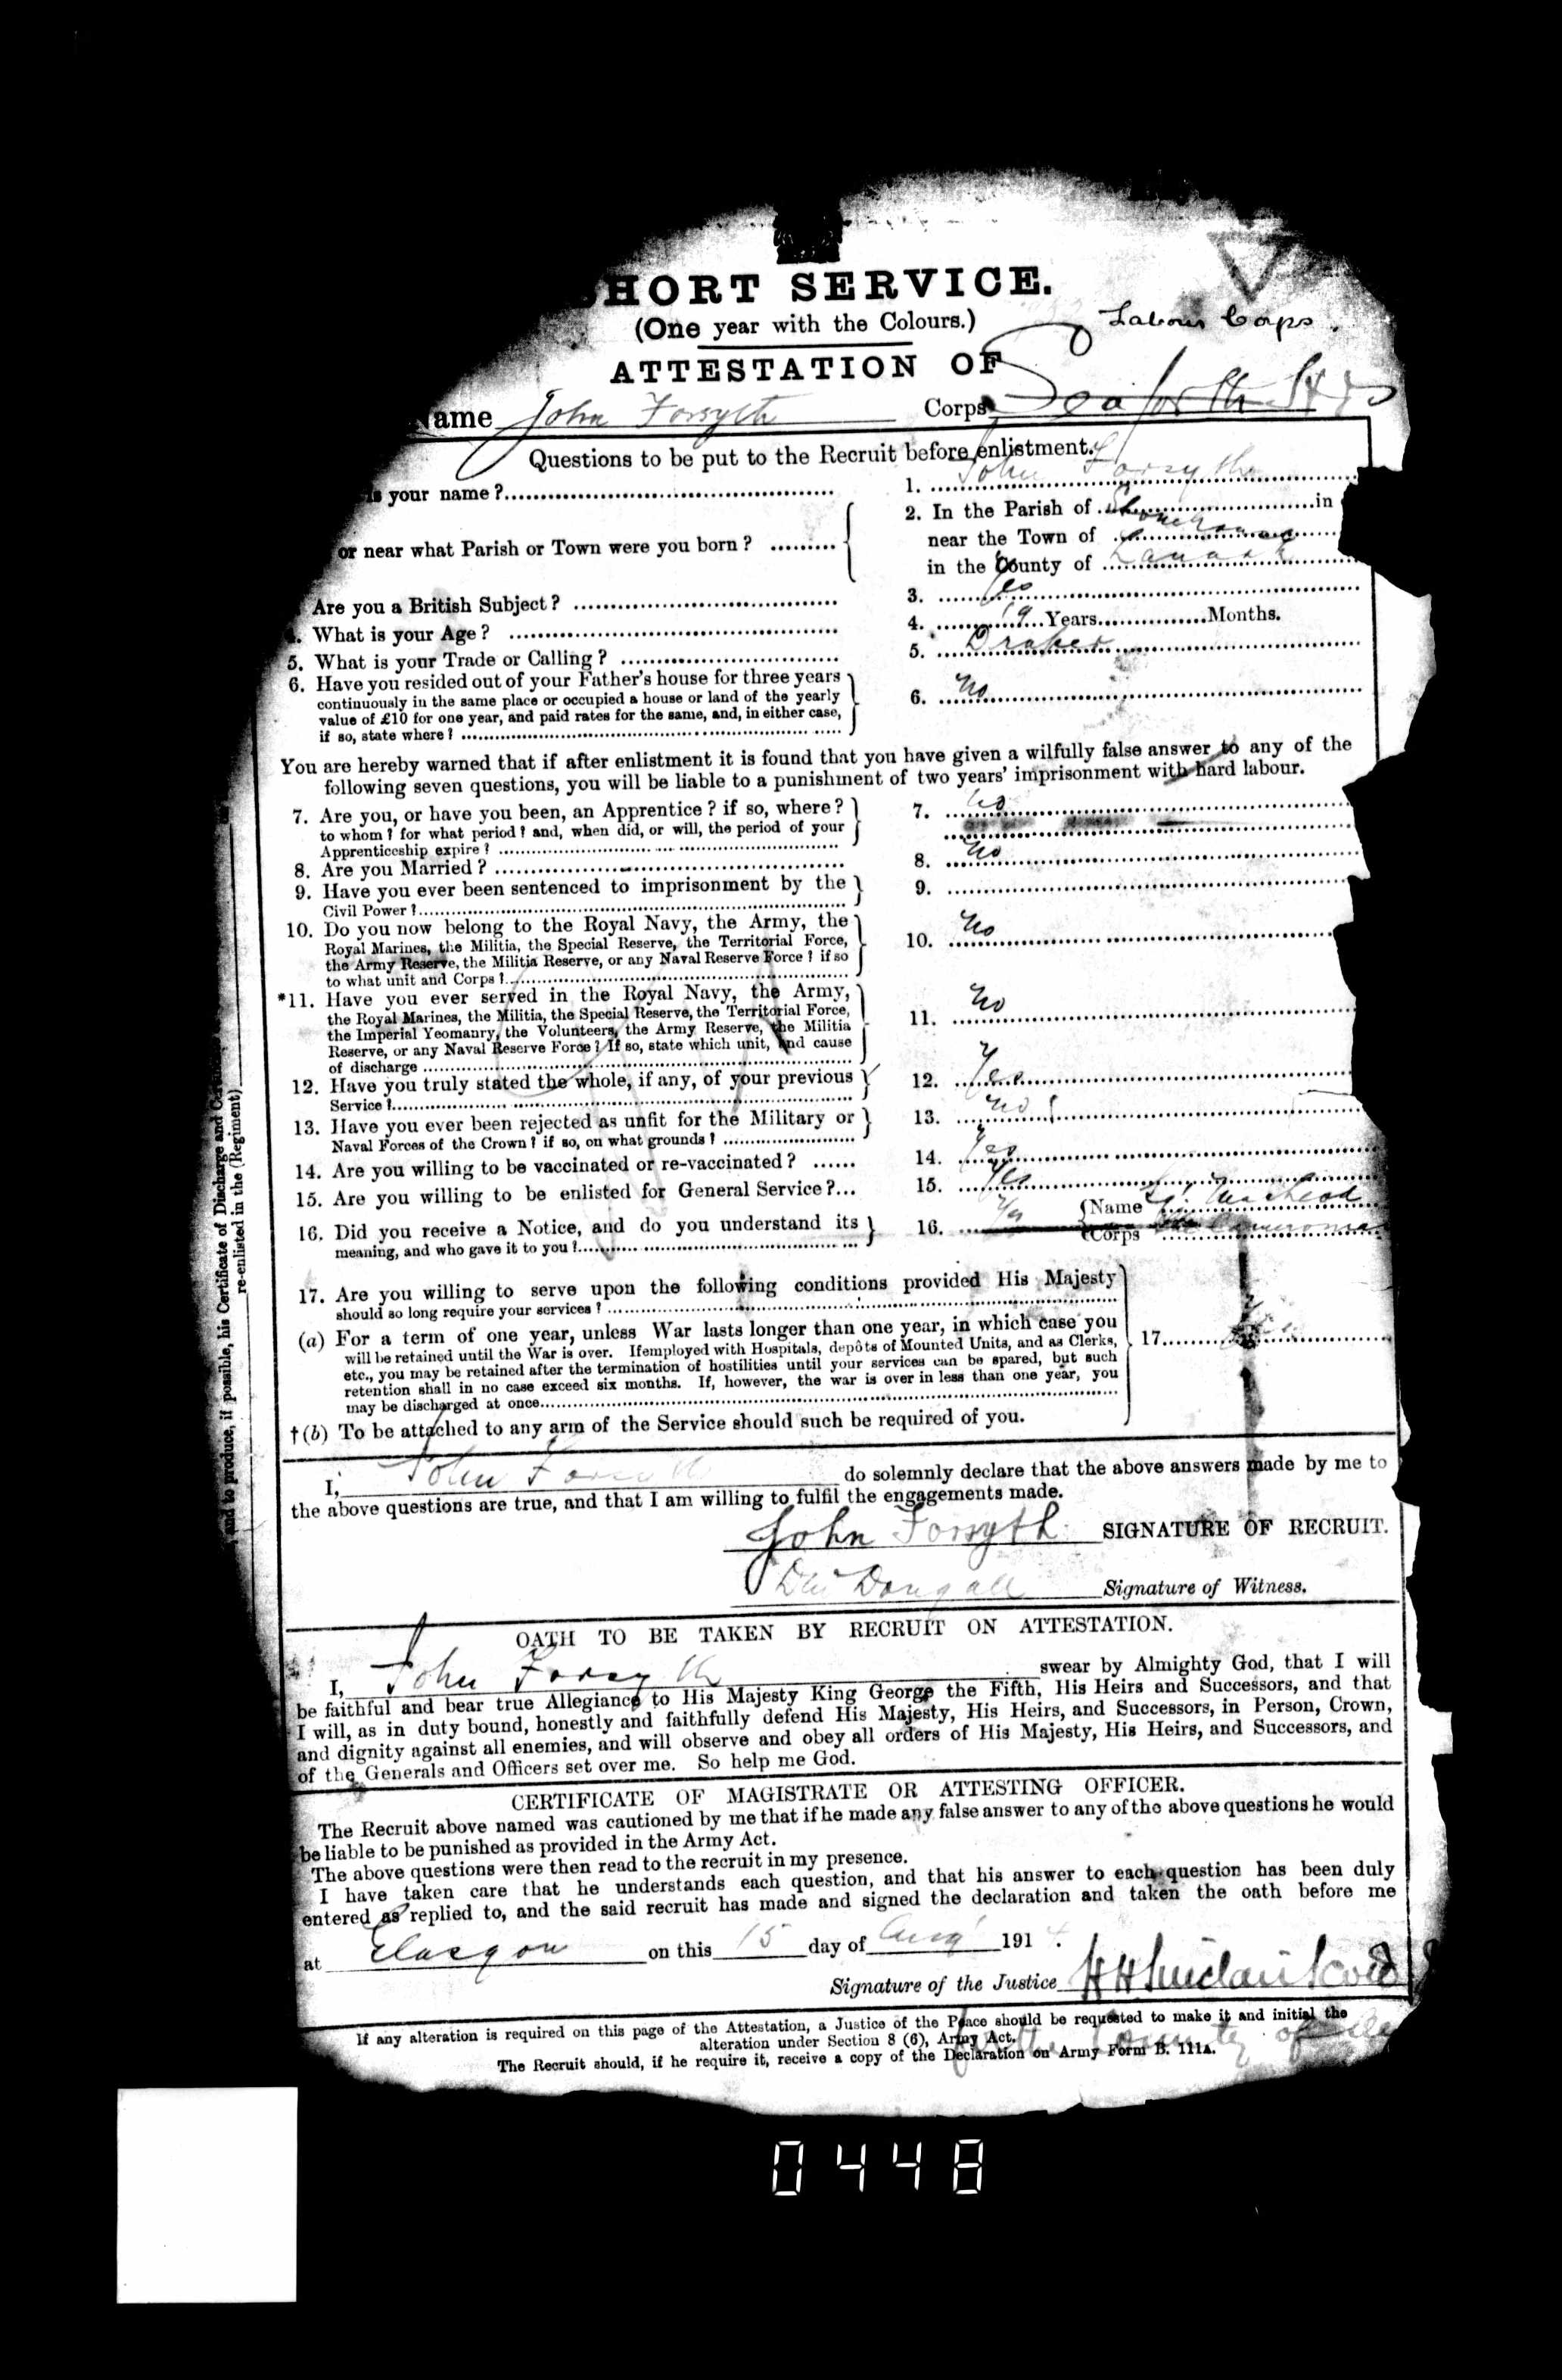 HORT SERVICE.
(One year with the Colours.)
Labour Corps.
ATTESTATION OF
Name John Forsyth Corps Seaforth Hrs
Questions to be put to the Recruit before enlistment.
is your name?
1. John Forsyth
or near what Parish or Town were you born?
2. In the Parish of in
near the Town of
in the County of Lanark
Are you a British Subject?
3. Yes
4. What is your Age?
4. 19 Years Months.
5. What is your Trade or Calling?
5. Draper
6. Have you resided out of your Father's house for three years
continuously in the same place or occupied a house or land of the yearly
value of £10 for one year, and paid rates for the same, and, in either case,
if so, state where?
6. No
You are hereby warned that if after enlistment it is found that you have given a wilfully false answer to any of the
following seven questions, you will be liable to a punishment of two years' imprisonment with hard labour.
7. Are you, or have you been, an Apprentice? if so, where?
to whom? for what period? and, when did, or will, the period of your
Apprenticeship expire?
7. No
8. Are you Married?
8. No
9. Have you ever been sentenced to imprisonment by the
Civil Power?
9.
10. Do you now belong to the Royal Navy, the Army, the
Royal Marines, the Militia, the Special Reserve, the Territorial Force,
the Army Reserve, the Militia Reserve, or any Naval Reserve Force? if so
to what unit and Corps?
10. No
*11. Have you ever served in the Royal Navy, the Army,
the Royal Marines, the Militia, the Special Reserve, the Territorial Force,
the Imperial Yeomanry, the Volunteers, the Army Reserve, the Militia
Reserve, or any Naval Reserve Force? If so, state which unit, and cause
of discharge
11. No
12. Have you truly stated the whole, if any, of your previous
Service?
12. Yes
13. Have you ever been rejected as unfit for the Military or
Naval Forces of the Crown? if so, on what grounds?
13. No
14. Are you willing to be vaccinated or re-vaccinated?
14. Yes
15. Are you willing to be enlisted for General Service?...
15. Yes
16. Did you receive a Notice, and do you understand its
meaning, and who gave it to you?
16. Yes
Name
Corps
17. Are you willing to serve upon the following conditions provided His Majesty
should so long require your services?
(a) For a term of one year, unless War lasts longer than one year, in which case you
will be retained until the War is over. If employed with Hospitals, depôts of Mounted Units, and as Clerks,
etc., you may be retained after the termination of hostilities until your services can be spared, but such
retention shall in no case exceed six months. If, however, the war is over in less than one year, you
may be discharged at once
17.
†(b) To be attached to any arm of the Service should such be required of you.
I, John Forsyth do solemnly declare that the above answers made by me to
the above questions are true, and that I am willing to fulfil the engagements made.
John Forsyth SIGNATURE OF RECRUIT.
Dougall Signature of Witness.
OATH TO BE TAKEN BY RECRUIT ON ATTESTATION.
I, John Forsyth swear by Almighty God, that I will
be faithful and bear true Allegiance to His Majesty King George the Fifth, His Heirs and Successors, and that
I will, as in duty bound, honestly and faithfully defend His Majesty, His Heirs, and Successors, in Person, Crown,
and dignity against all enemies, and will observe and obey all orders of His Majesty, His Heirs, and Successors, and
of the Generals and Officers set over me. So help me God.
CERTIFICATE OF MAGISTRATE OR ATTESTING OFFICER.
The Recruit above named was cautioned by me that if he made any false answer to any of the above questions he would
be liable to be punished as provided in the Army Act.
The above questions were then read to the recruit in my presence.
I have taken care that he understands each question, and that his answer to each question has been duly
entered as replied to, and the said recruit has made and signed the declaration and taken the oath before me
at Glasgow on this 15 day of Aug 1914.
Signature of the Justice H H Sinclair Scott
If any alteration is required on this page of the Attestation, a Justice of the Peace should be requested to make it and initial the
alteration under Section 8 (6), Army Act.
The Recruit should, if he require it, receive a copy of the Declaration on Army Form B. 111A.
and to produce, if possible, his Certificate of Discharge and
re-enlisted in the (Regiment)
0448